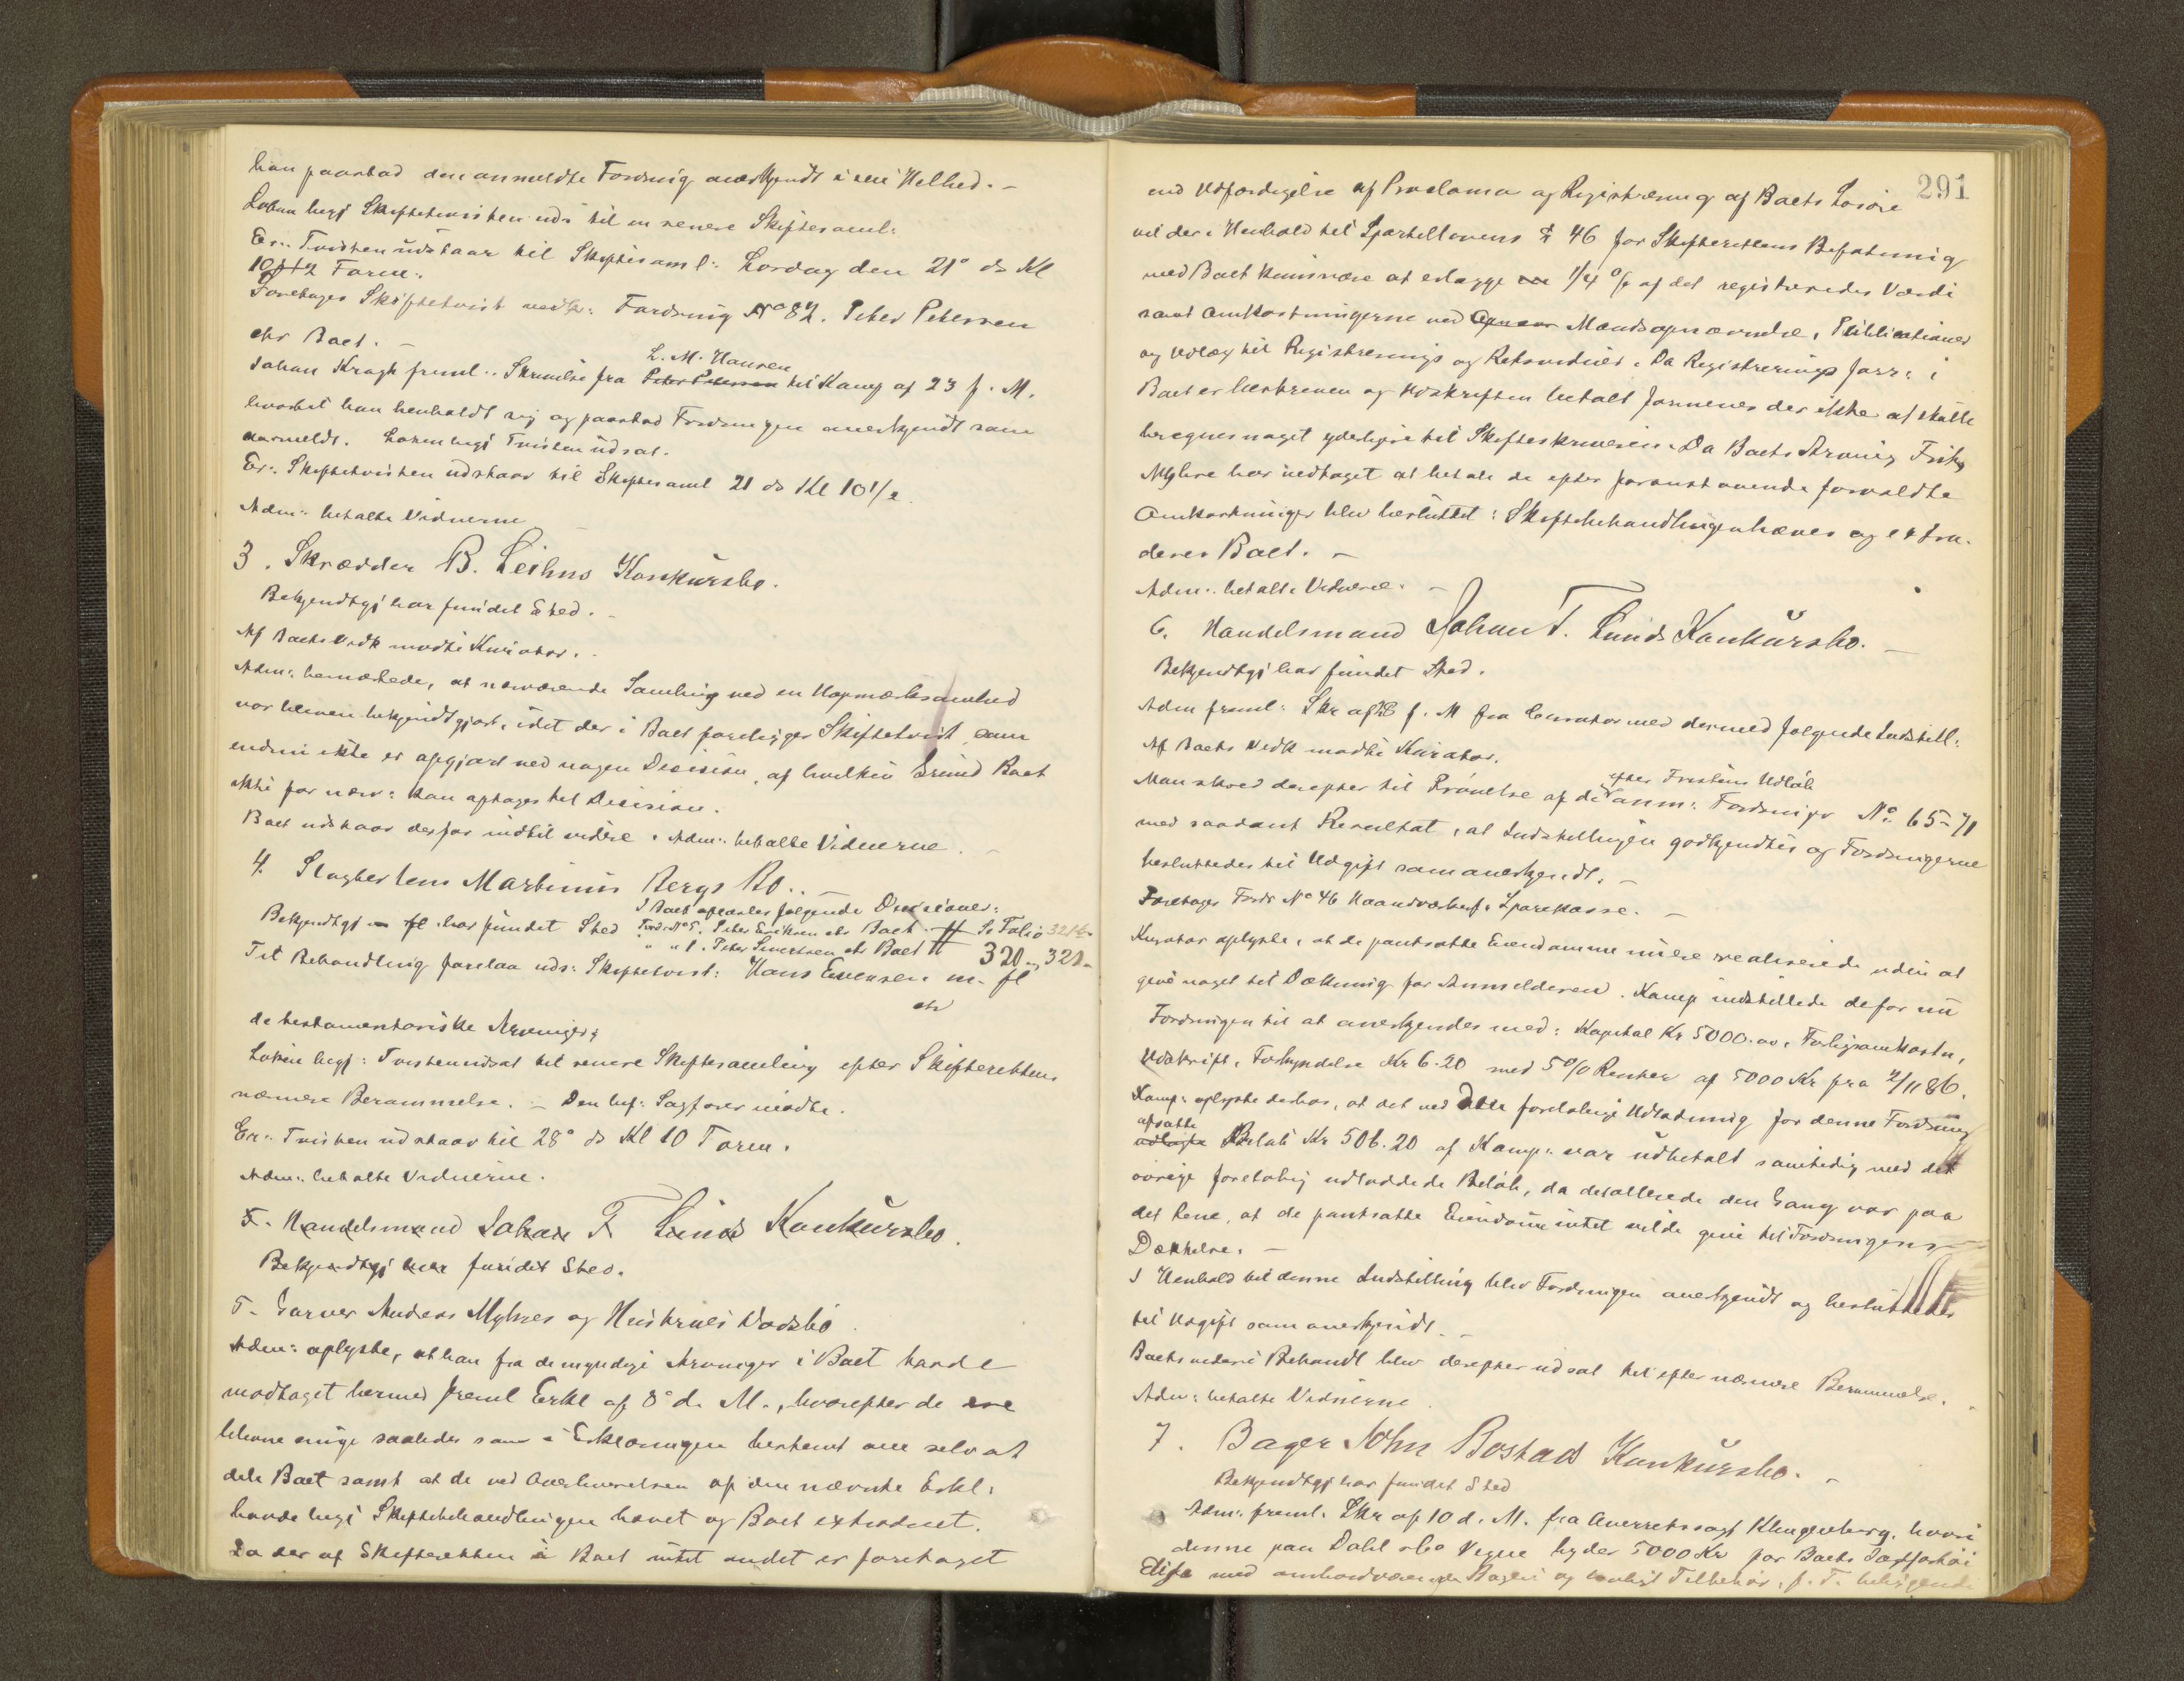 han paastod den anmeldte Fordring anerkjendt i sin Helhed. –
Lohm begj Skiftetvisten uds til en senere Skiftesaml:
Er: Tvisten udstaar til Skiftesaml: Lordag den 21° ds Kl
10 1/2 Form:
Foretages Skiftetvist vedk: Fordring No 82. Peter Petersen
ctr Boet. –
L. M. Hansen
Johan Kragh freml: Skrivelse fra Peter Petersen til Kamp af 23 f. M.
hvortil han henholdt sig og paastod Fordringen anerkjendt som
anmeldt. Lohm begj Tvisten udsat.
Er: Skiftetvisten udstaar til Skiftesaml 21 ds Kl 10 1/2
Adm: betalte Vidnerne
3. Skrædder B. Leihns Konkursbo.
Bekjendtgj har fundet Sted. –
Af Boets Vedk modte Kurator. –
Adm: bemærkede, at nærværende Samling ved en Uopmærksomhed
var bleven bekjendtgjort, idet der i Boet foreligger Skiftetvist som
endnu ikke er afgjort ved nogen Decision, af hvilken Grund Boet
ikke for nærv: kan optages til Decision.
Boet udstaar derfor indtil videre. Adm: betalte Vidnerne. –
4. Slagter Jens Martinus Bergs Bo. –
I Boet afsagdes folgende Decisioner:
Bekjendtgj – fl. har fundet Sted Ford: No 5. Peter Eriksen ctr Boet. ff Se Folio 321 b.
" " 1. Peter Sivertsen ctr Boet ff 320 – 321 –
Til Behandling forelaa uds: Skiftetvist: Hans Evensen m. fl
ctr
de testamentariske Arvinger;
Lohm begj: Tvisten udsat til senere Skiftesamling efter Skifterettens
nærmere Berammelse. – Den bef: Sagforer modte.
Er: Tvisten udstaar til 28° ds Kl 10 Form.
Adm: betalte Vidnerne.
5. Handelsmand Johan T. Lunds Konkursbo.
Bekjendtgj har fundet Sted.
5. Garver Anders Myhres og Hustrues Dodsbo.
Adm: oplyste, at han fra de myndige Arvinger i Boet havde
modtaget hermed freml Erkl af 8° d. M., hvorefter de ere
blevne enige saaledes som i Erklæringen bestemt om selv at
dele Boet samt at de ved Overleverelsen af den nævnte Erkl:
havde begj Skiftebehandlingen hævet og Boet extraderet.
Da der af Skifteretten i Boet intet andet er foretaget
291
end Udfærdigelse af Proclama og Registrering af Boets Losore
vil der i Henhold til Sportellovens § 46 for Skifterettens Befatning
med Boet kun være at erlægge 1/4 % af det registreredes Værdi
samt Omkostningerne ved Mandsopnævnelse, Publicationer
og Udlæg til Registrerings og Retsvidner. Da Registrerings Forr: i
Boet er beskreven og Udskriften betalt formenes der ikke at skulle
beregnes noget yderligere til Skifteskriveren. Da Boets Arving Frits
Myhre har vedtaget at betale de efter foranstaaende forvoldte
Omkostninger blev besluttet: Skiftebehandlingen hæves og extra-
deres Boet. –
Adm: betalte Vidnerne. –
6. Handelsmand Johan T. Lunds Konkursbo. –
Bekjendtgj har fundet Sted.
Adm freml: Skr af 28 f. M fra Curator med dermed folgende Indstill:
Af Boets Vedk modte Kurator.
efter Fristens Udlob
Man skred derefter til Provelse af de anm: Fordringer No 65–71
med saadant Resultat, at Indstillingen godkjendtes og Fordringerne
besluttedes til Udgift som anerkjendt. –
Foretages Fordr No 46 Haandværkerf: Sparekasse. –
Kurator oplyste, at de pantsatte Eiendomme nu ere realiserede uden at
give noget til Dækning for Anmelderen. Kamp indstillede defor nu
Fordringen til at anerkjendes med: Kapital Kr 5000.00, Forligsomkostn,
Udskrift, Forkyndelse Kr 6.20 med 5 % Renter af 5000 Kr fra 2/11 86.
Kamp: oplyste derhos, at det ved den forelobige Udlodning for denne Fordring
afsatte
udlagte Belob Kr 506.20 af Kamp: var udbetalt samtidig med det
ovrige forelobig udloddede Belob, da det allerede den Gang var paa
det Rene, at de pantsatte Eiendomme intet vilde give til Fordringens
Dækkelse. –
I Henhold til denne Indstilling blev Fordringen anerkjendt og besluttedes
til Udgift som anerkjendt. –
Boets videre Behandl blev derefter udsat til efter nærmere Berammelse.
Adm: betalte Vidnerne.
7. Bager John Bostads Konkursbo. –
Bekjendtgj har fundet Sted
Adm: freml. Skr af 10 d. M. fra Overretssagf Klingenberg, hvori
denne paa Dahl &Co Vegne byder 5000 Kr for Boets
Elise med ombordværende Bageri og ovrigt Tilbehor, p. T. beliggende